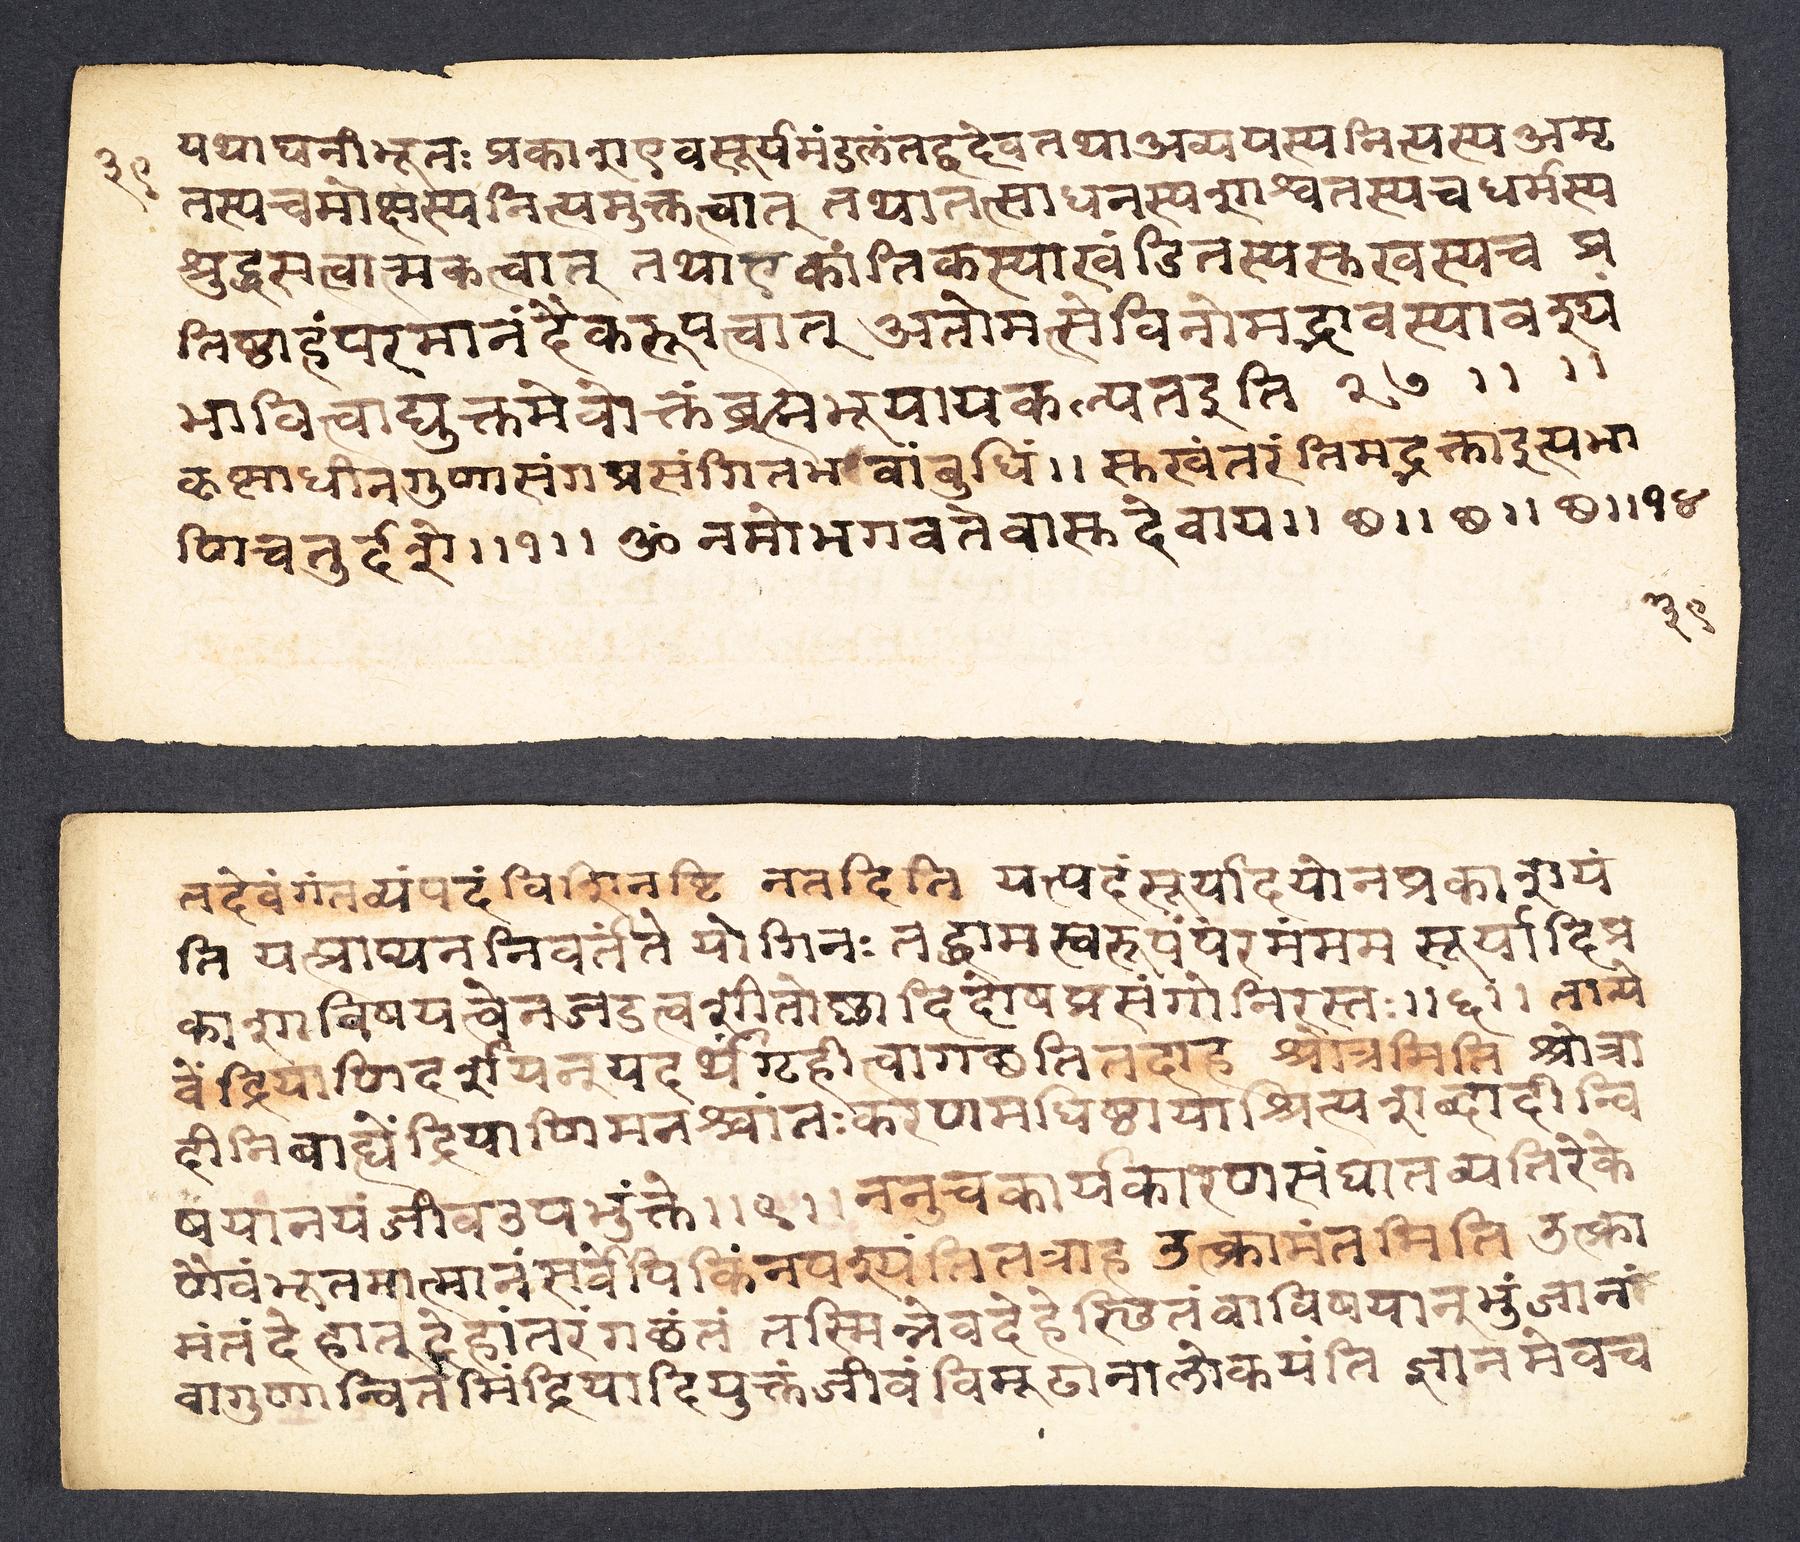 ३९
यथाघनीभूतः प्रकाशएवसूर्यमंडलंतद्वदेवतथाअव्ययस्यनित्यस्यअमृ
तस्यचमोक्षस्यनित्यमुक्तत्वात् तथातत्साधनस्यशाश्वतस्यचधर्मस्य
श्रुद्धसत्वात्मकत्वात् तथाएकांतिकस्याखंडितस्यसुखस्यच प्र
तिष्ठाहंपरमानंदैकरूपत्वात् अतोमत्सेविनोमद्भावस्यावश्यं
भावित्वाद्युक्तमेवोक्तंब्रह्मभूयायकल्पतइति २७ ।। ।।
कृष्णाधीनगुणासंगप्रसंगितभवांबुधिं।। सुखंतरंतिमद्भक्ताइत्यभा
णिचतुर्दशे।।१।। ॐ नमोभगवतेवासुदेवाय।। छ।। छ।। छ।।१४
३९
तदेवंगंतव्यंपदंविशिनष्टि नतदिति यत्पदंसूर्यादयोनप्रकाशयं
ति यत्प्राप्यननिवर्तंतेयोगिनः तद्धामस्वरूपंपरमंमम सूर्यादिप्र
काशाविषयत्वेनजडत्वशीतोष्णादिदोषप्रसंगोनिरस्तः।।६।। तान्ये
वेंद्रियाणिदर्शयन्यदर्थंगृहीत्वागछतितदाह श्रोत्रमिति श्रोत्रा
दीनिबाह्येंद्रियाणिमनश्चांतःकरणमधिष्ठायाश्रित्यशब्दादीन्वि
षयानयंजीवउपभुंक्ते।।९।। ननुचकार्यकारणसंघातव्यतिरेके
णैवंभूतमात्मानंसर्वेपिकिंनपश्यंतितत्राह उत्क्रामंतमिति उत्क्रा
मंतंदेहात्देहांतरंगछंतं तस्मिन्नेवदेहेस्छितंवाविषयान्भुंजानं
वागुणान्वितमिंद्रियादियुक्तंजीवंविमूढानालोकयंति ज्ञानमेवच